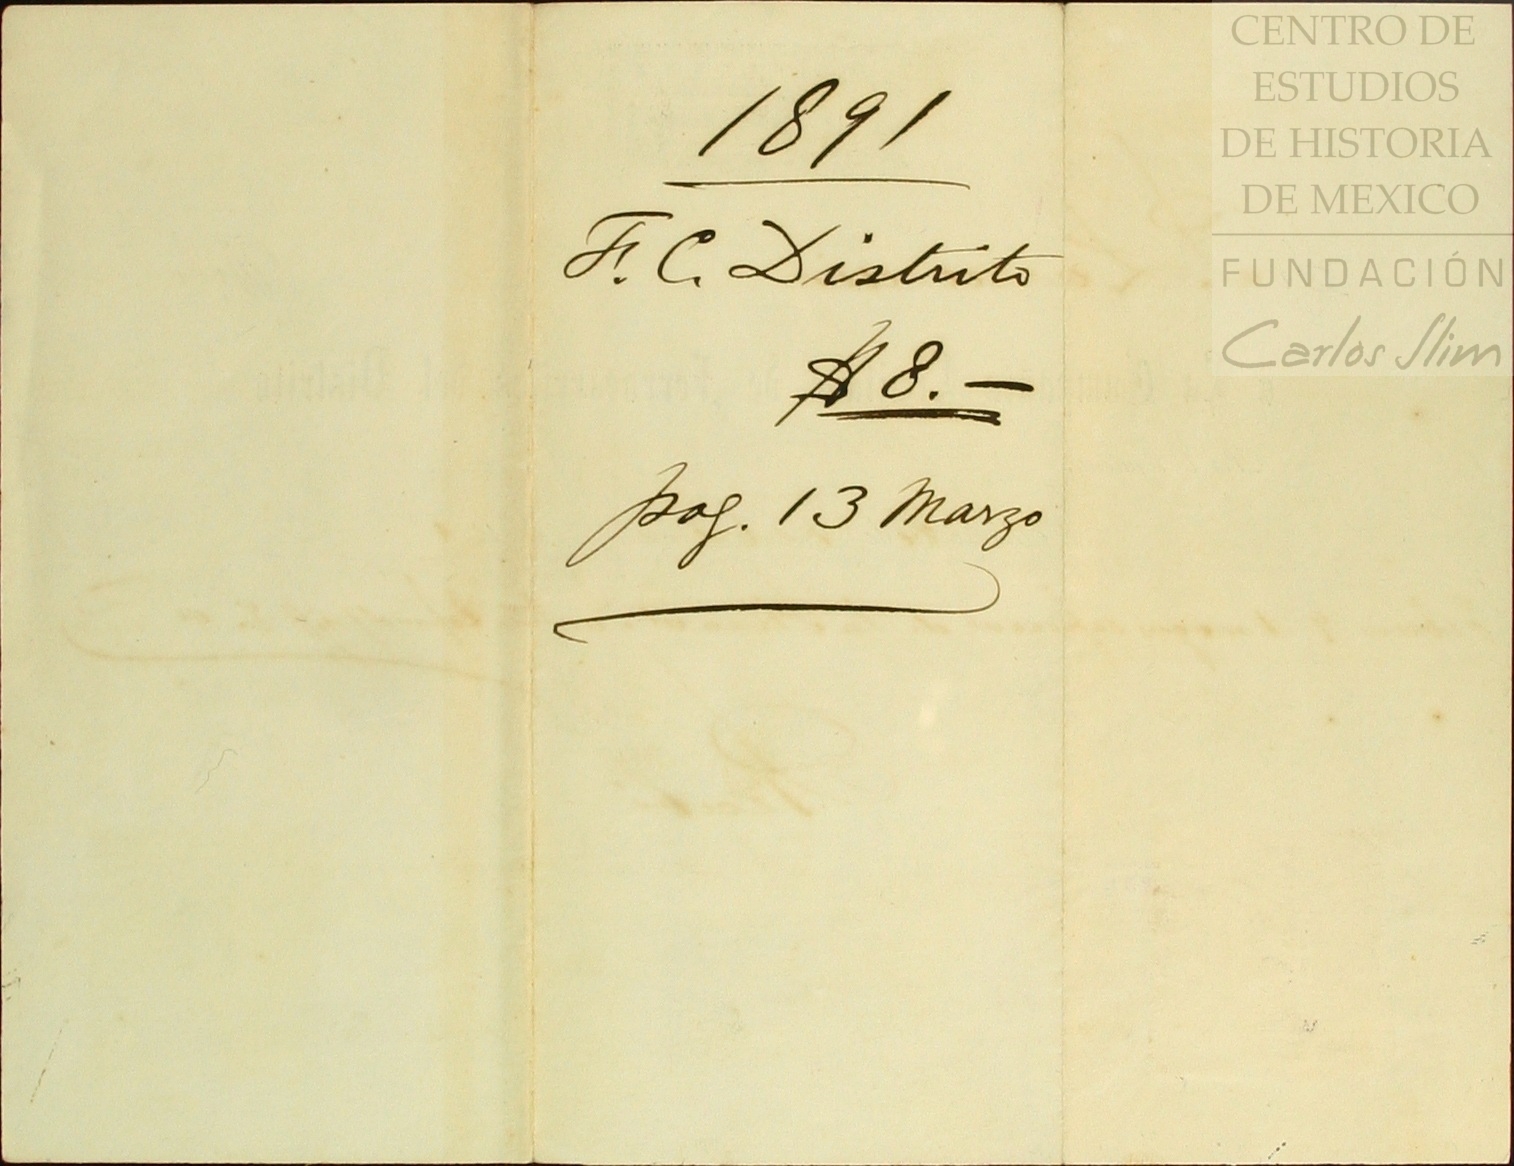 1891
F. C. Distrito
$ 8. —
pag. 13 Marzo
CENTRO DE
ESTUDIOS
DE HISTORIA
DE MEXICO
FUNDACIÓN
Carlos Slim